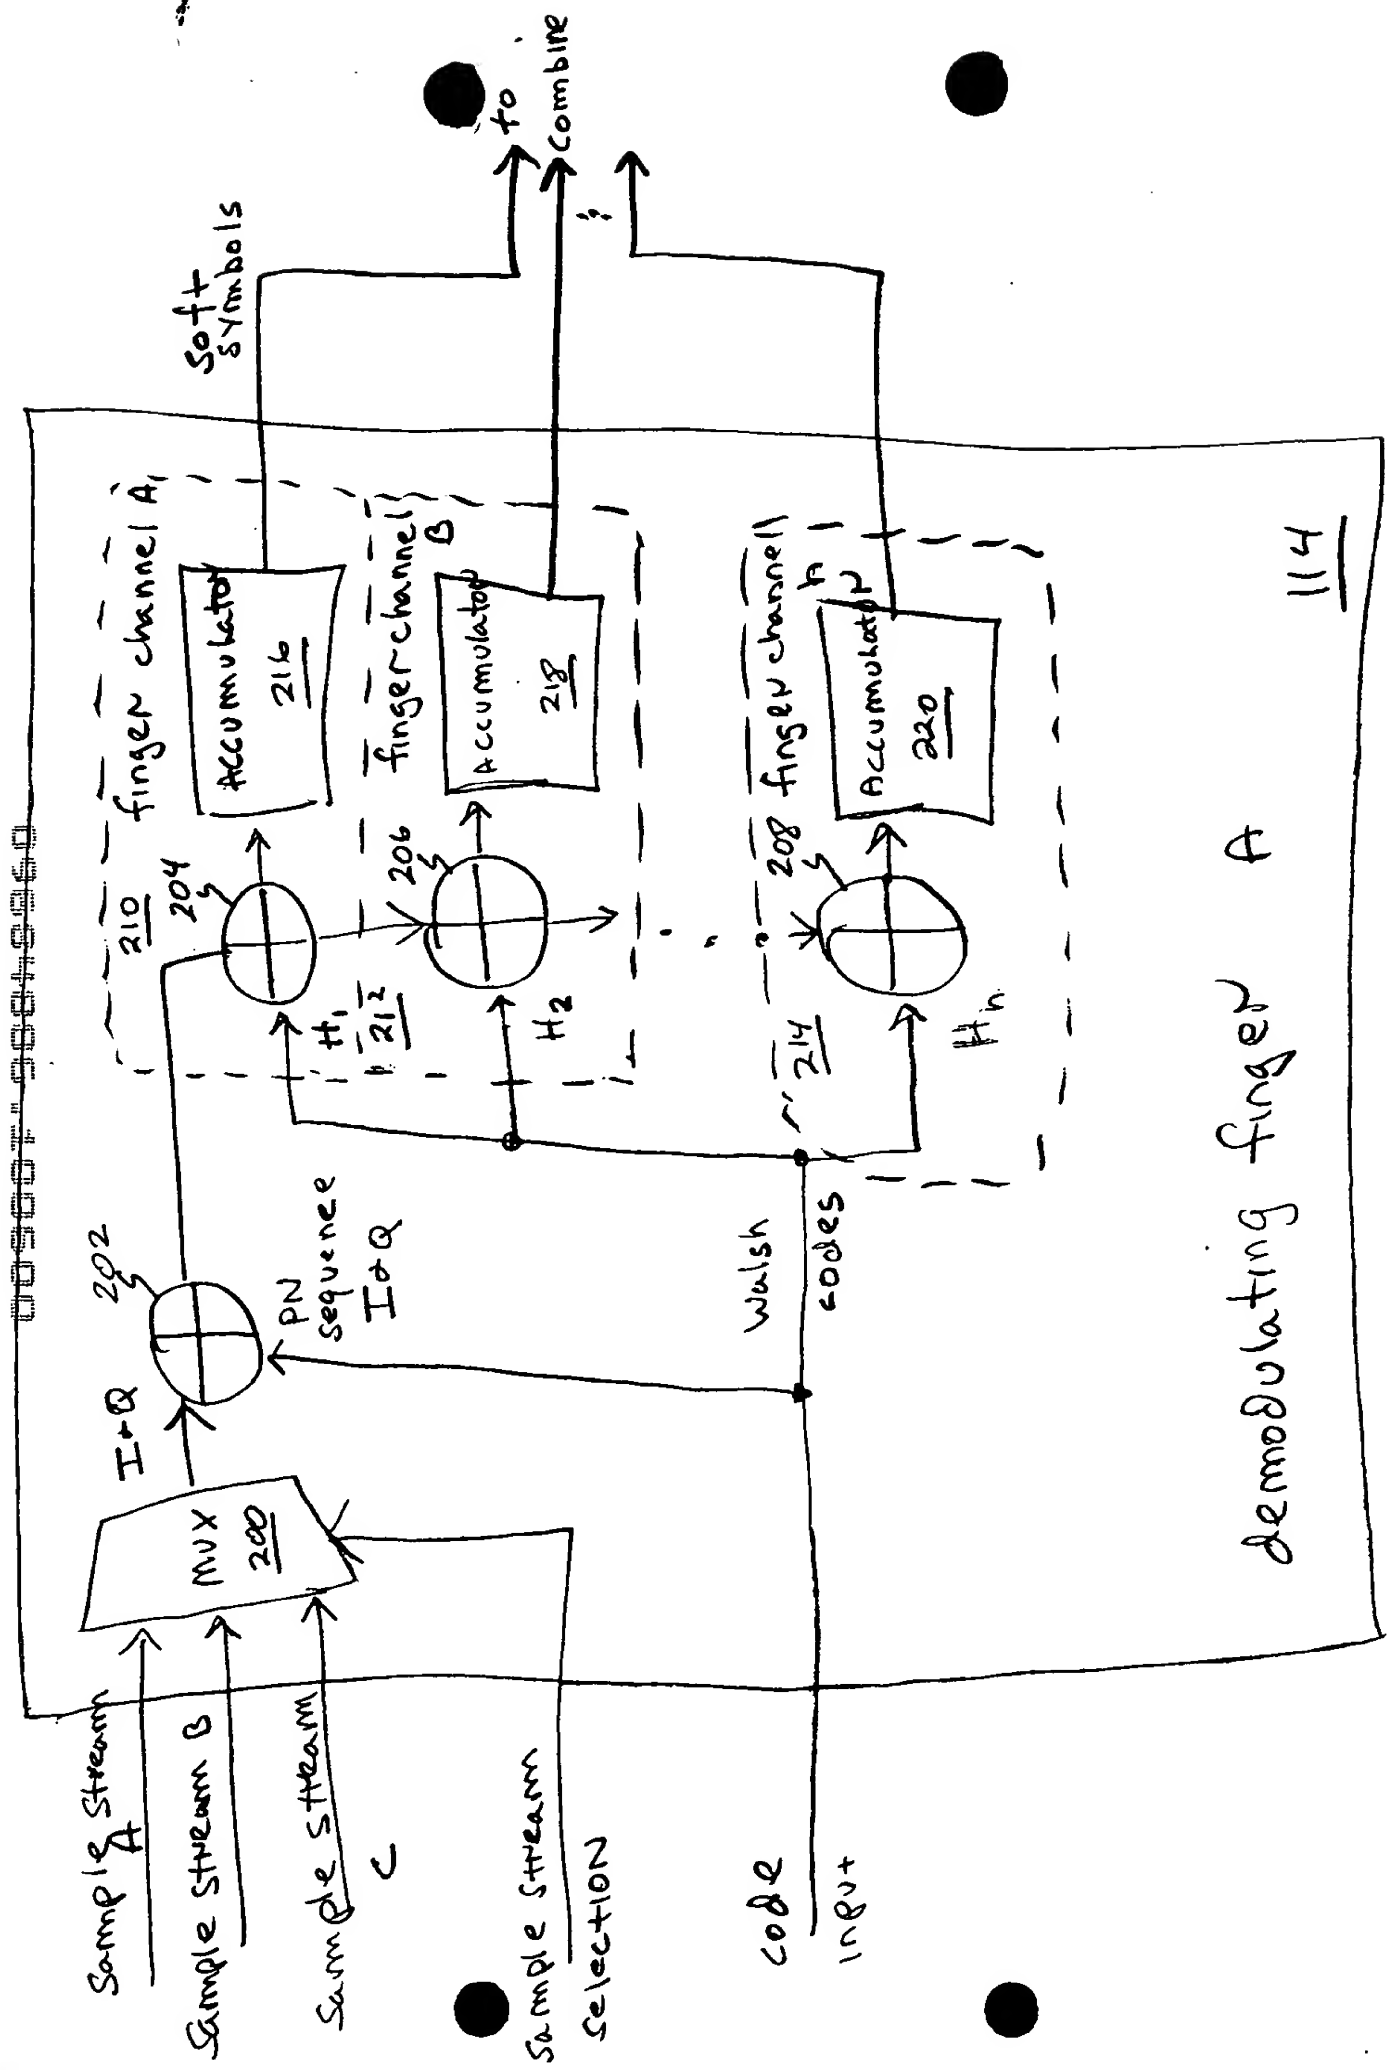 Sample Stream
A
Sample Stream B
Sample Stream
C
Sample Stream
Selection
Code
Input
MUX
200
I+Q
202
PN
sequence
I+Q
Walsh
codes
210
finger channel A,
204
H1
Accumulator
216
212
finger channel
B
206
H2
Accumulator
218
214
208
finger channel
Hn
Accumulator
220
Soft
symbols
to
Combine
demodulating finger A
114